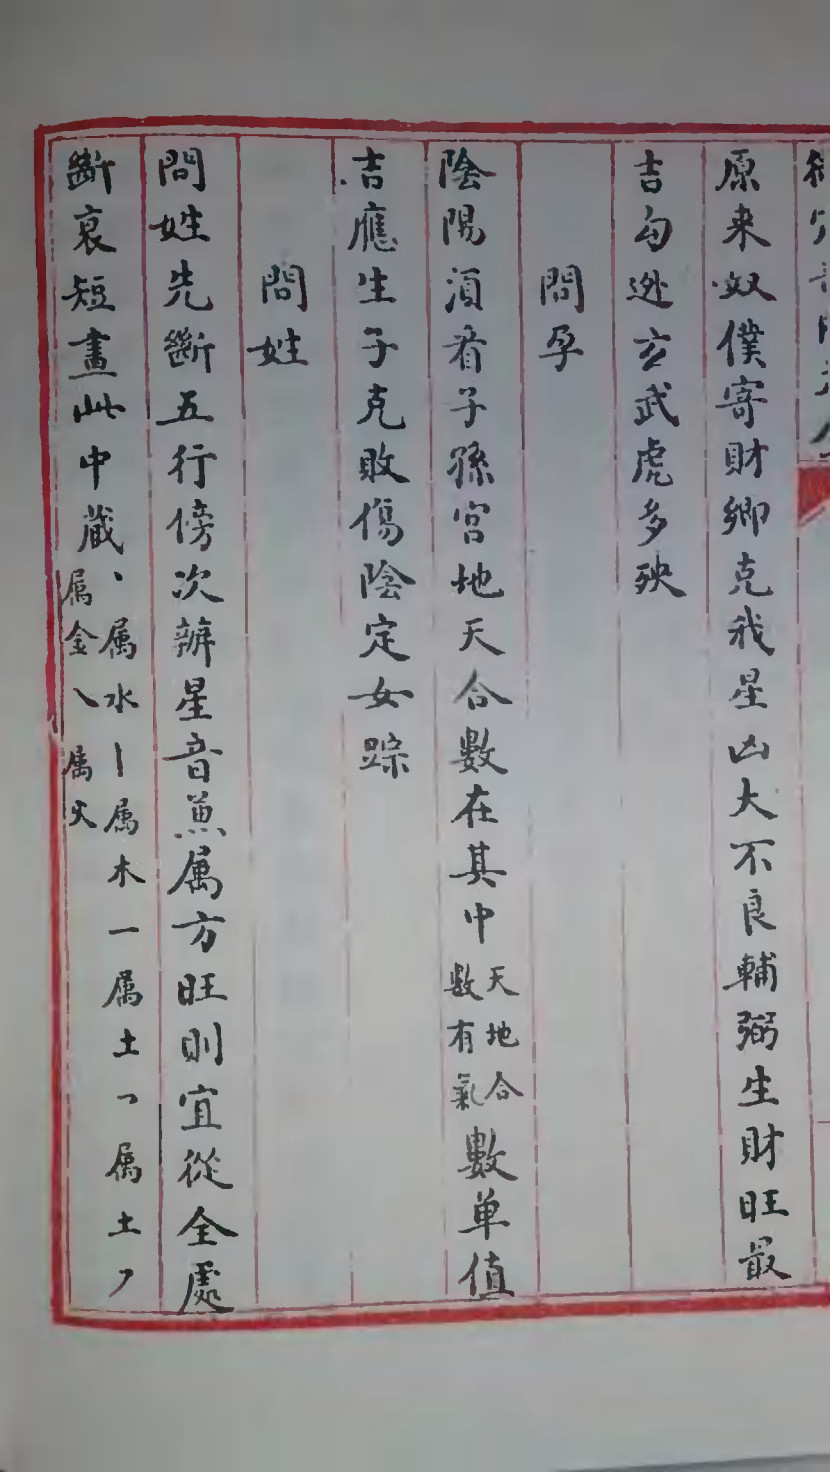 原来奴僕寄財鄉克我星凶大不良輔弼生財旺最
吉勾逊玄武虎多殃
問孕
陰陽須看子孫宮地天合數在其中天地合數有氣數单值
吉應生子克敗傷陰定女踪
問姓
問姓先斷五行傍次辨星音魚属方旺則宜從全處
斷衰短畫此中藏丶属水丨属木一属土㇕属土㇒属金㇏属火